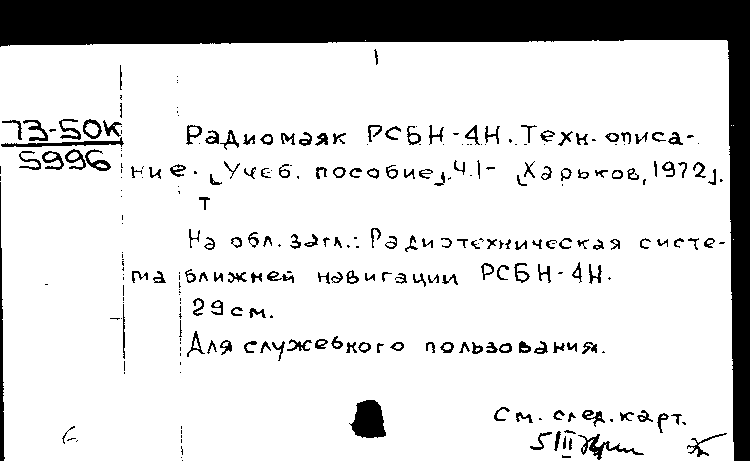 73-50К
5996
Радиомаяк РСБН-4Н. Техн. описа-
ние. [Учеб. пособие]. Ч.1- [Харьков, 1972].
т
На обл. загл.: Радиотехническая систе-
ма ближней навигации РСБН-4Н.
29 см.
Для служебного пользования.
См. след. карт.
5 III